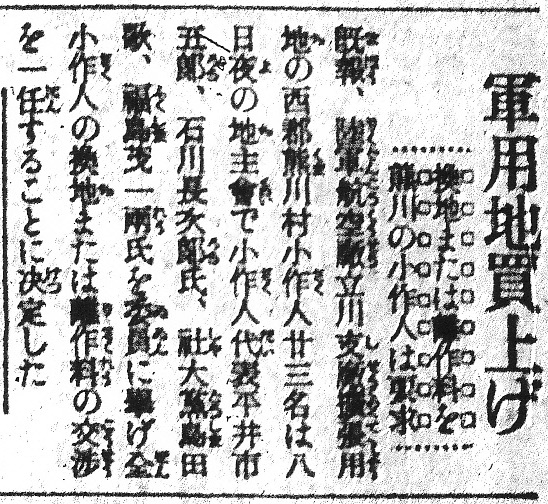 軍用地買上げ
換地または離作料を
熊川の小作人は要求
既報、陸軍航空廠立川支廠擴張用
地の西郡熊川村小作人廿三名は八
日夜の地主會で小作人代表平井市
五郎、石川長次郎氏、社大黨島田
歌、福島茂一兩氏を委員に擧げ全
小作人の換地または離作料の交渉
を一任することに決定した